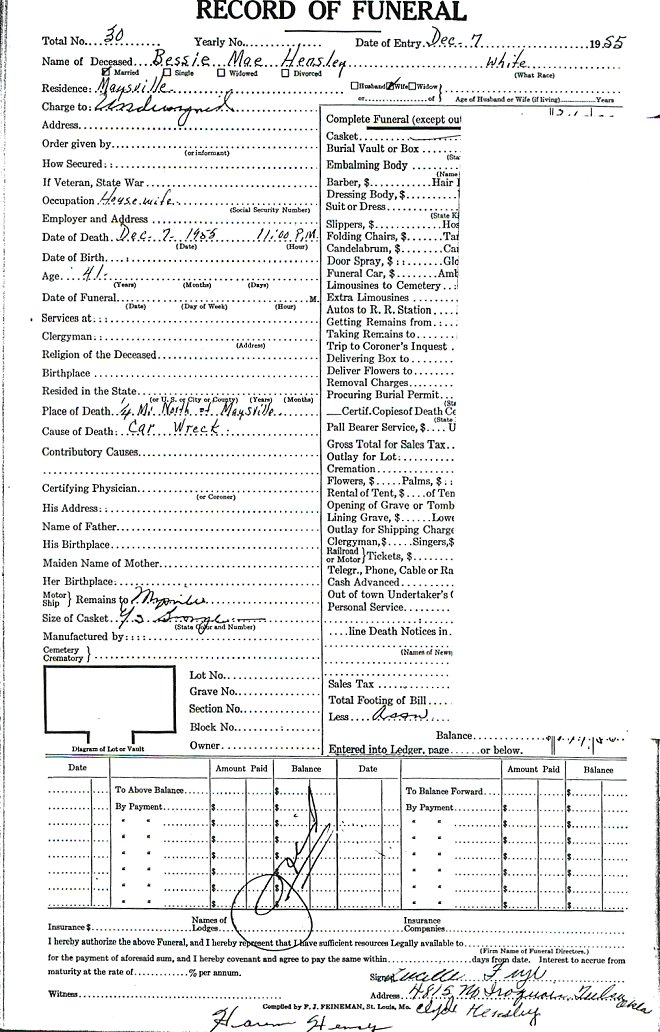 RECORD OF FUNERAL
Total No. 30 Yearly No. Date of Entry Dec. 7 1955
Name of Deceased Bessie Mae Heasley White
Married Single Widowed Divorced (What Race)
Residence: Maysville Husband Wife Widow
or of Age of Husband or Wife (if living) Years
Charge to:
Address
Order given by
(or informant)
How Secured:
If Veteran, State War
Occupation Housewife
(Social Security Number)
Employer and Address
Date of Death Dec. 7- 1955 11:00 P.M.
(Date) (Hour)
Date of Birth
Age 41
(Years) (Months) (Days)
Date of Funeral M.
(Date) (Day of Week) (Hour)
Services at:
Clergyman:
(Address)
Religion of the Deceased
Birthplace
Resided in the State
(or U. S. or City or County) (Years) (Months)
Place of Death 4 Mi North of Maysville
Cause of Death: Car Wreck
Contributory Causes
Certifying Physician
(or Coroner)
His Address:
Name of Father
His Birthplace
Maiden Name of Mother
Her Birthplace
Motor Ship Remains to
Size of Casket
(State Color and Number)
Manufactured by:
Cemetery
Crematory
Lot No.
Grave No.
Section No.
Block No.
Owner
Diagram of Lot or Vault
Complete Funeral (except out
Casket
Burial Vault or Box
(Sta
Embalming Body
(Name
Barber, $ Hair
Dressing Body, $
Suit or Dress
(State K
Slippers, $ Hos
Folding Chairs, $ Ta
Candelabrum, $ Ca
Door Spray, $ Glo
Funeral Car, $ Amb
Limousines to Cemetery
Extra Limousines
Autos to R. R. Station
Getting Remains from:
Taking Remains to
Trip to Coroner's Inquest
Delivering Box to
Deliver Flowers to
Removal Charges
Procuring Burial Permit
(Sta
Certif. Copies of Death Ce
(State
Pall Bearer Service, $ U
Gross Total for Sales Tax
Outlay for Lot:
Cremation
Flowers, $ Palms, $
Rental of Tent, $ of Ten
Opening of Grave or Tomb
Lining Grave, $ Lowe
Outlay for Shipping Charge
Clergyman, $ Singers, $
Railroad or Motor Tickets, $
Telegr., Phone, Cable or Ra
Cash Advanced
Out of town Undertaker's C
Personal Service
line Death Notices in
(Names of News
Sales Tax
Total Footing of Bill
Less Assn
Balance
Entered into Ledger, page or below.
Date Amount Paid Balance Date Amount Paid Balance
To Above Balance $ To Balance Forward $
By Payment $ $ By Payment $ $
" " $ $ " " $ $
" " $ $ " " $ $
" " $ $ " " $ $
" " $ $ " " $ $
" " $ $ " " $ $
Insurance $ Names of Lodges Insurance Companies
I hereby authorize the above Funeral, and I hereby represent that I have sufficient resources Legally available to
(Firm Name of Funeral Directors.)
for the payment of aforesaid sum, and I hereby covenant and agree to pay the same within days from date. Interest to accrue from
maturity at the rate of % per annum.
Signed Lucille
Witness Address 4815 No Iroquois Tulsa Okla
Compiled by F. J. FEINEMAN, St. Louis, Mo. Clyde Hensley